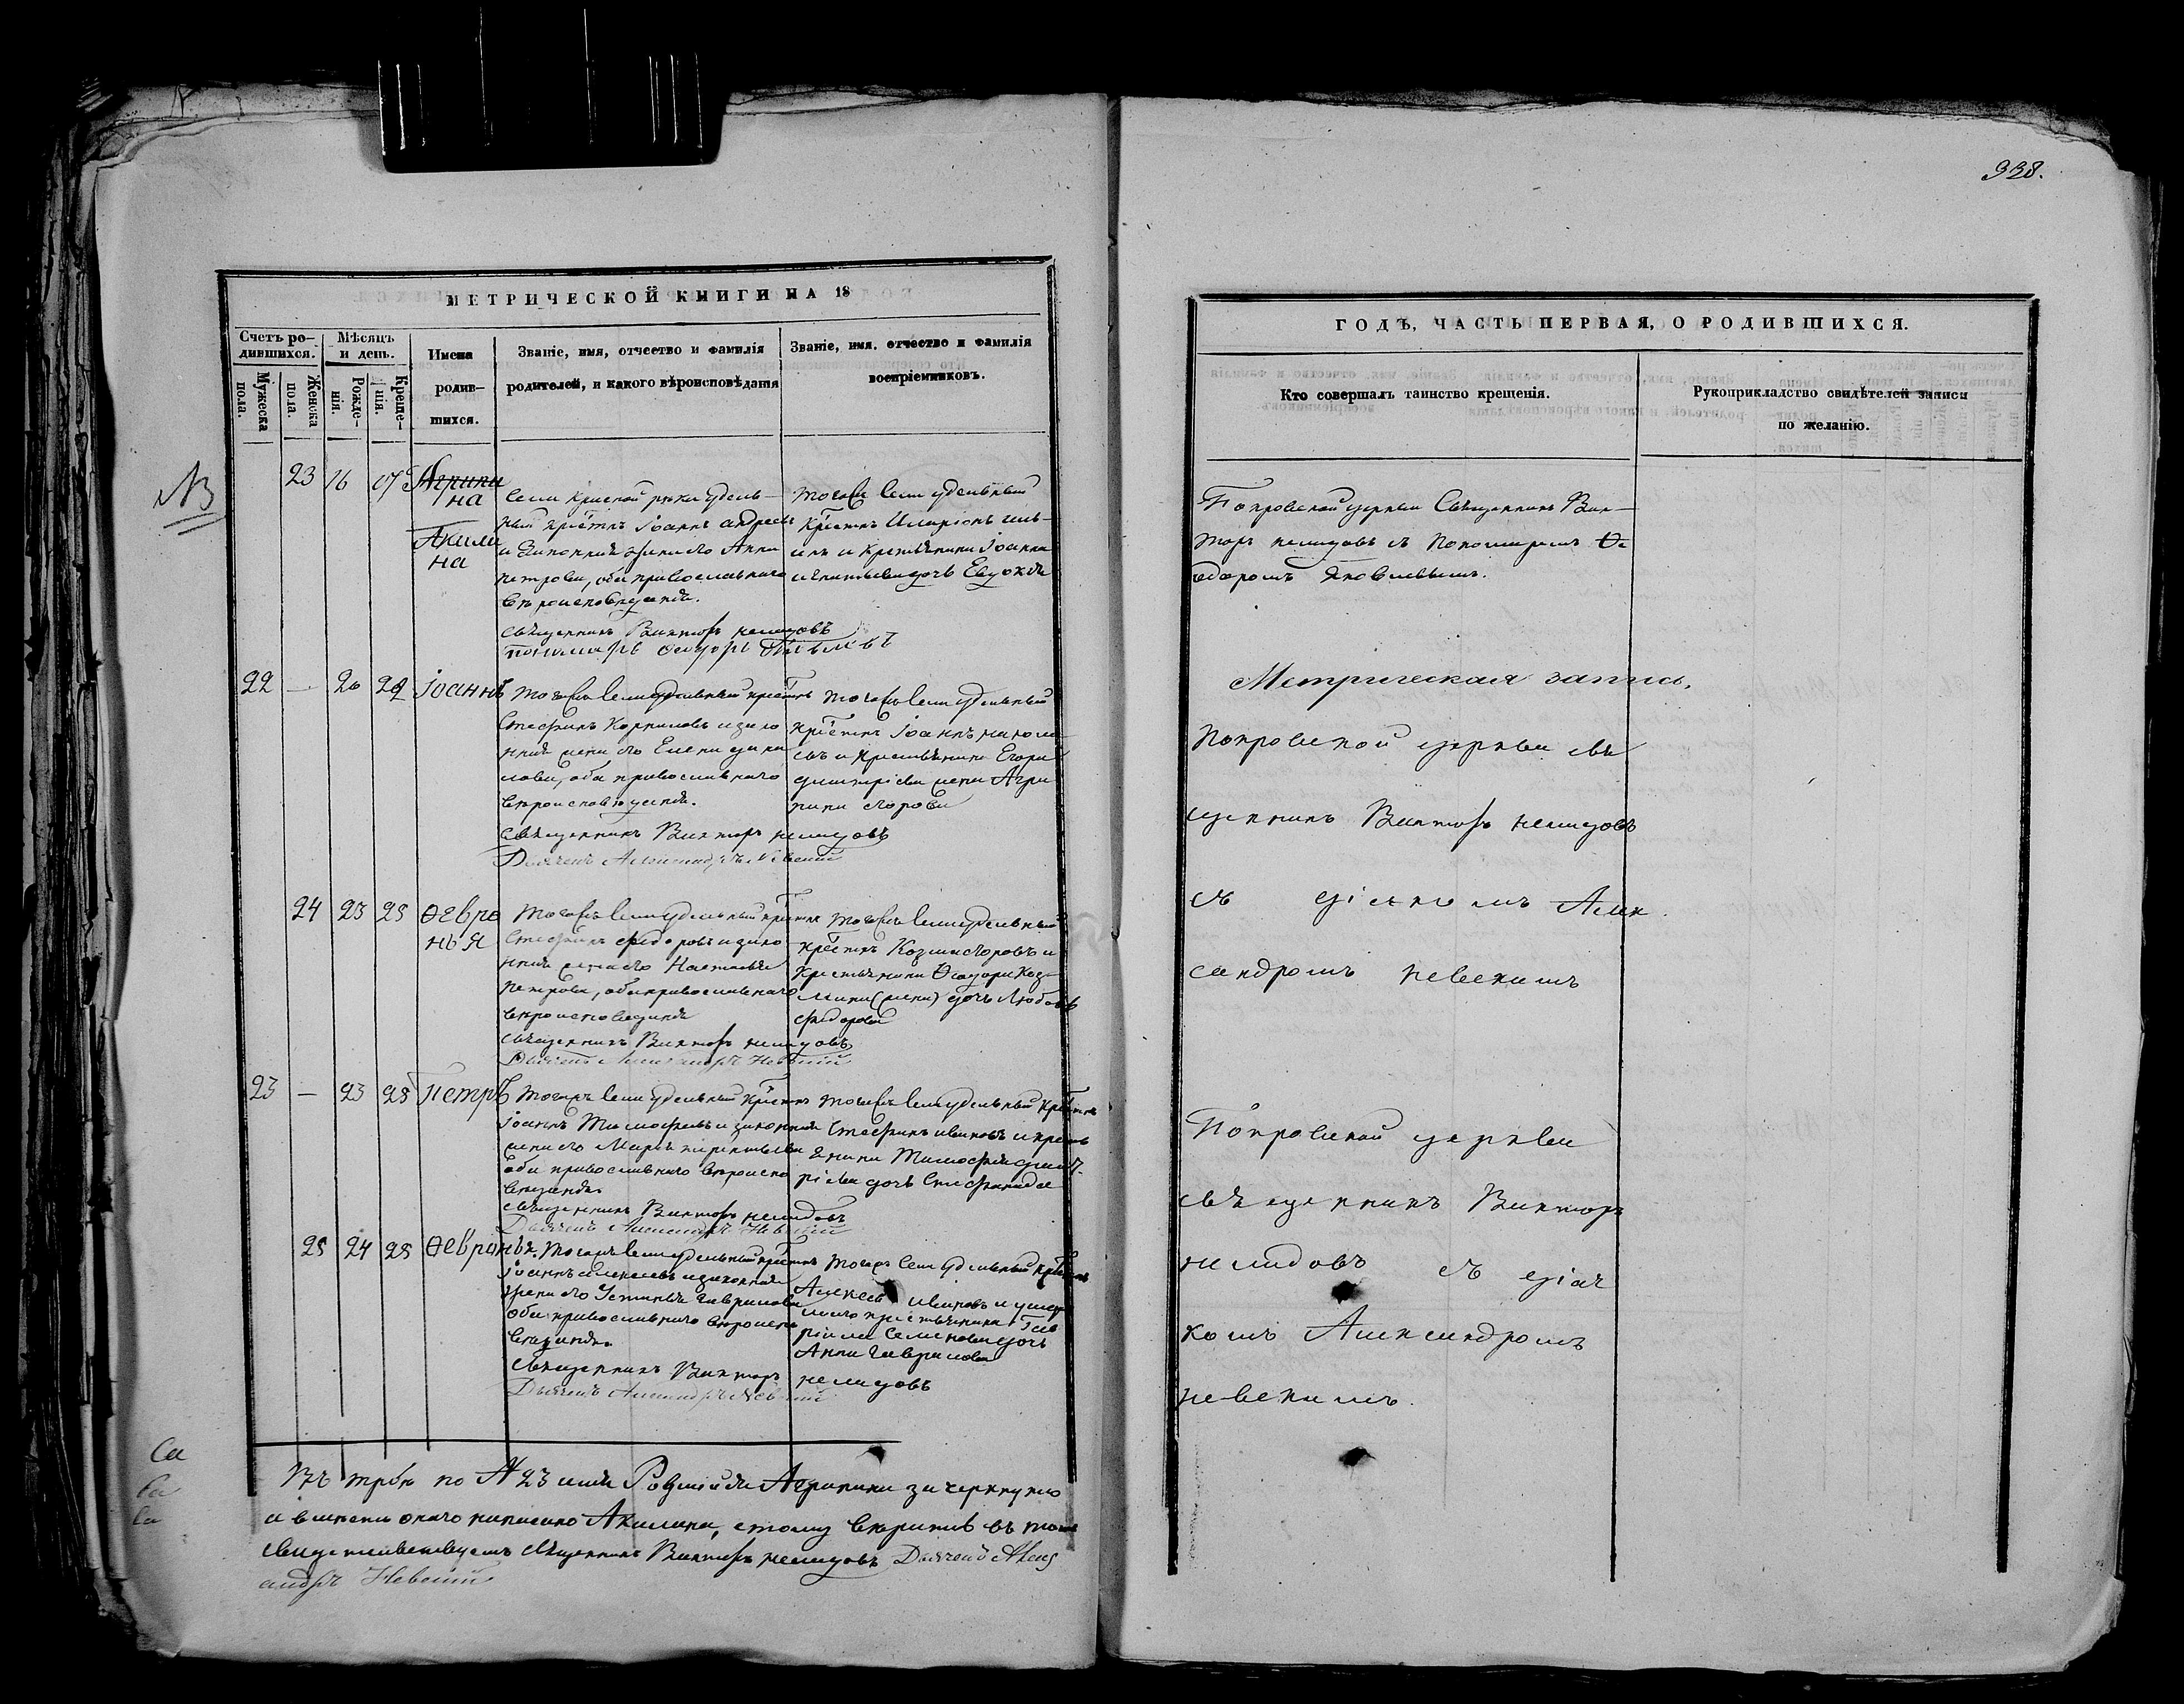 338.
МЕТРИЧЕСКОЙ КНИГИ НА 18
Счетъ ро-
дившихся.
Мужеска
пола.
Женска
пола.
Мѣсяцъ
и день.
Рожде-
нія.
Креще-
нія.
Имена
родив-
шихся.
Званіе, имя, отчество и фамилія
родителей, и какого вѣроисповѣданія
Званіе, имя, отчество и фамилія
воспріемниковъ.
NB
23 16 17 Агрипи
на
Акили
на
Села Красной рѣки удѣль-
ный крестнъ Іоаннъ Андреевъ
и законная жена его Анна
Петрова, оба православнаго
вѣроисповеданія.
Священникъ Викторъ Нелидовъ
Тогожъ села удельный
крестнъ Иларіонъ
и крестьянина Іоанна
дочь Евдокія
22 — 20 22 Іоаннъ
Тогожъ села удельный крестнъ
Стефанъ Корниловъ и зако
нная жена его Елена Дани
лова, оба православнаго
вѣроисповѣданія.
Священникъ Викторъ Нелидовъ
Дьячекъ Александръ Невский
Тогожъ села удельный
крестнъ Іоаннъ
и крестьянина Егора
Димитріева жена Агри
пина
24 23 25 Ѳевро
нья
Тогожъ села удельный крестнъ
Стефанъ Федоровъ и зако
нная жена его Настасья
Петрова, оба православнаго
вѣроисповеданія
Священникъ Викторъ Нелидовъ
Дьячекъ Александръ Невский
Тогожъ села удельный
крестнъ Козма Егоровъ и
крестьянина Ѳедора Коз-
мина (жена) дочь Любовь
Федорова
23 — 23 25 Петръ
Тогожъ села удельный крестнъ
Іоаннъ Тимофеевъ и законная
жена его Марья
оба православнаго вѣроиспо
вѣданія.
Священникъ Викторъ Нелидовъ
Дьячекъ Александръ Невский
Тогожъ села удельный крестнъ
Стефанъ Ивановъ и кресть
янина Тимофея Димит-
ріева дочь Стефанида
25 24 25 Ѳевронья.
Тогожъ села удельный крестнъ
Іоаннъ Алексеевъ и законная
жена его Устинья Гаврилова
оба православнаго вѣроиспо
вѣданія.
Священникъ Викторъ Нелидовъ
Дьячекъ Александръ Невский
Тогожъ села удельный крестнъ
Алексей Ивановъ и умер
шаго крестьянина Гав
ріила Семенова дочь
Анна Гаврилова
Въ графе по № 23 имя Родшейся Агрипина зачеркнуто
и вместо онаго написано Акилина, этому верить въ томъ
свидетельствуемъ Священникъ Викторъ Нелидовъ Дьячекъ Алекс
андръ Невский
ГОДЪ, ЧАСТЬ ПЕРВАЯ, О РОДИВШИХСЯ.
Кто совершалъ таинство крещенія.
Рукоприкладство свидѣтелей записи
по желанію.
Покровской церкви Священникъ Вик-
торъ Нелидовъ съ Пономаремъ Ѳе
одоромъ Яковлевымъ.
Метрическая запись.
Покровской церкви свя
щенникъ Викторъ Нелидовъ
съ діячкомъ Алек
сандромъ Невскимъ
Покровской церкви
священникъ Викторъ
Нелидовъ съ діяч
комъ Александромъ
Невскимъ.